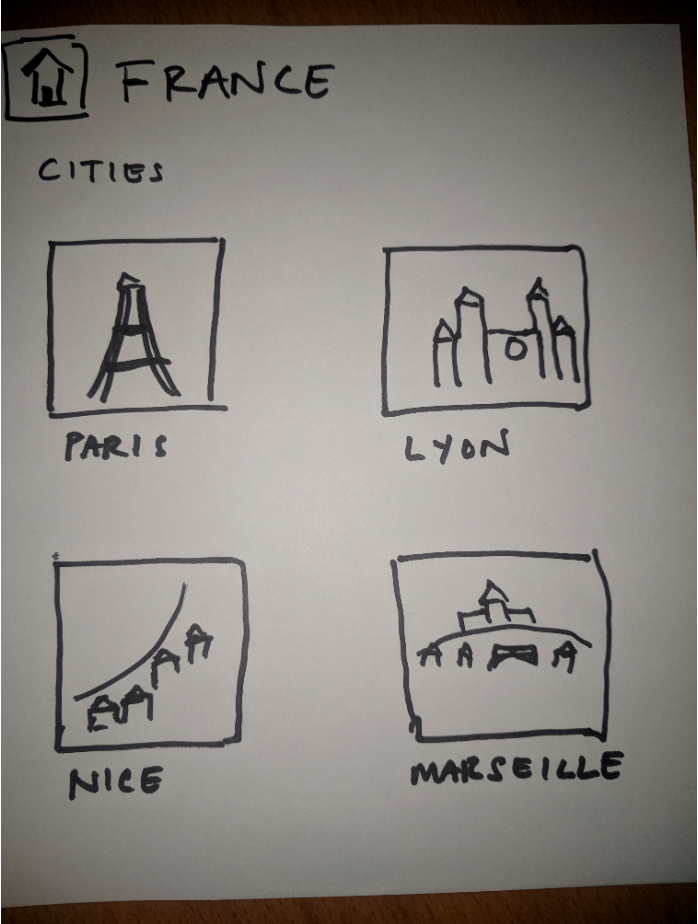 FRANCE
CITIES
PARIS
LYON
NICE
MARSEILLE